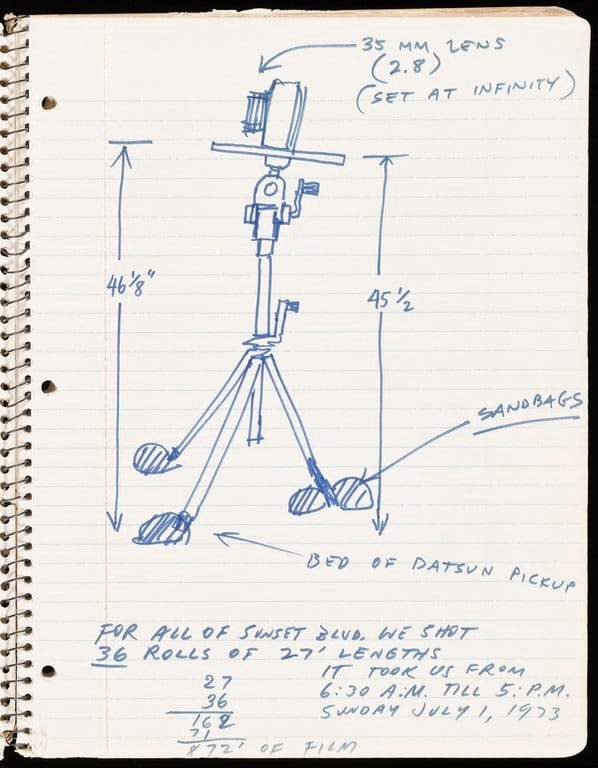 35 MM LENS
(2.8)
(SET AT INFINITY)
46 1/8"
45 1/2
SANDBAGS
BED OF DATSUN PICKUP
FOR ALL OF SUNSET BLVD. WE SHOT
36 ROLLS OF 27' LENGTHS
IT TOOK US FROM
6:30 A.M. TILL 5:P.M.
SUNDAY JULY 1, 1973
27
36
162
71
872' OF FILM